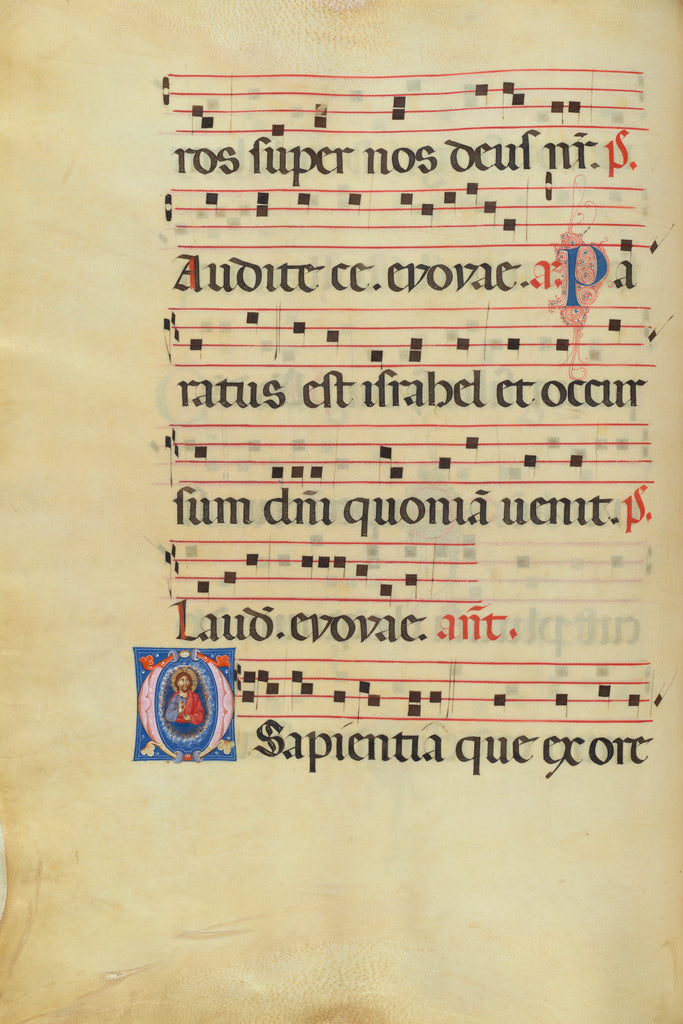 ros super nos deus nr̄. p̄s.
Audite ce. evovae. a. Pa
ratus est israhel et occur
sum dn̄i quoniā uenit. p̄s.
Laud̄. evovae. ant̄.
O Sapientia que ex ore